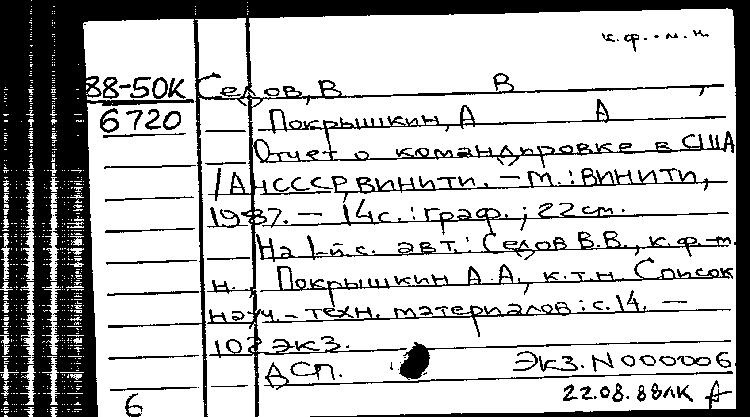 к.ф.-м.н.
88-50К Седов, В В ,
6720 Покрышкин, А А
Отчет о командировке в США
/АН СССР, ВИНИТИ. — М.: ВИНИТИ,
1987. — 14с.: граф.; 22 см.
На 1-й с. авт.: Седов В.В., к.ф-м.
н., Покрышкин А.А., к.т.н. Список
науч.-техн. материалов: с.14. —
102 экз.
ДСП. Экз. N 000006
22.08.88
6